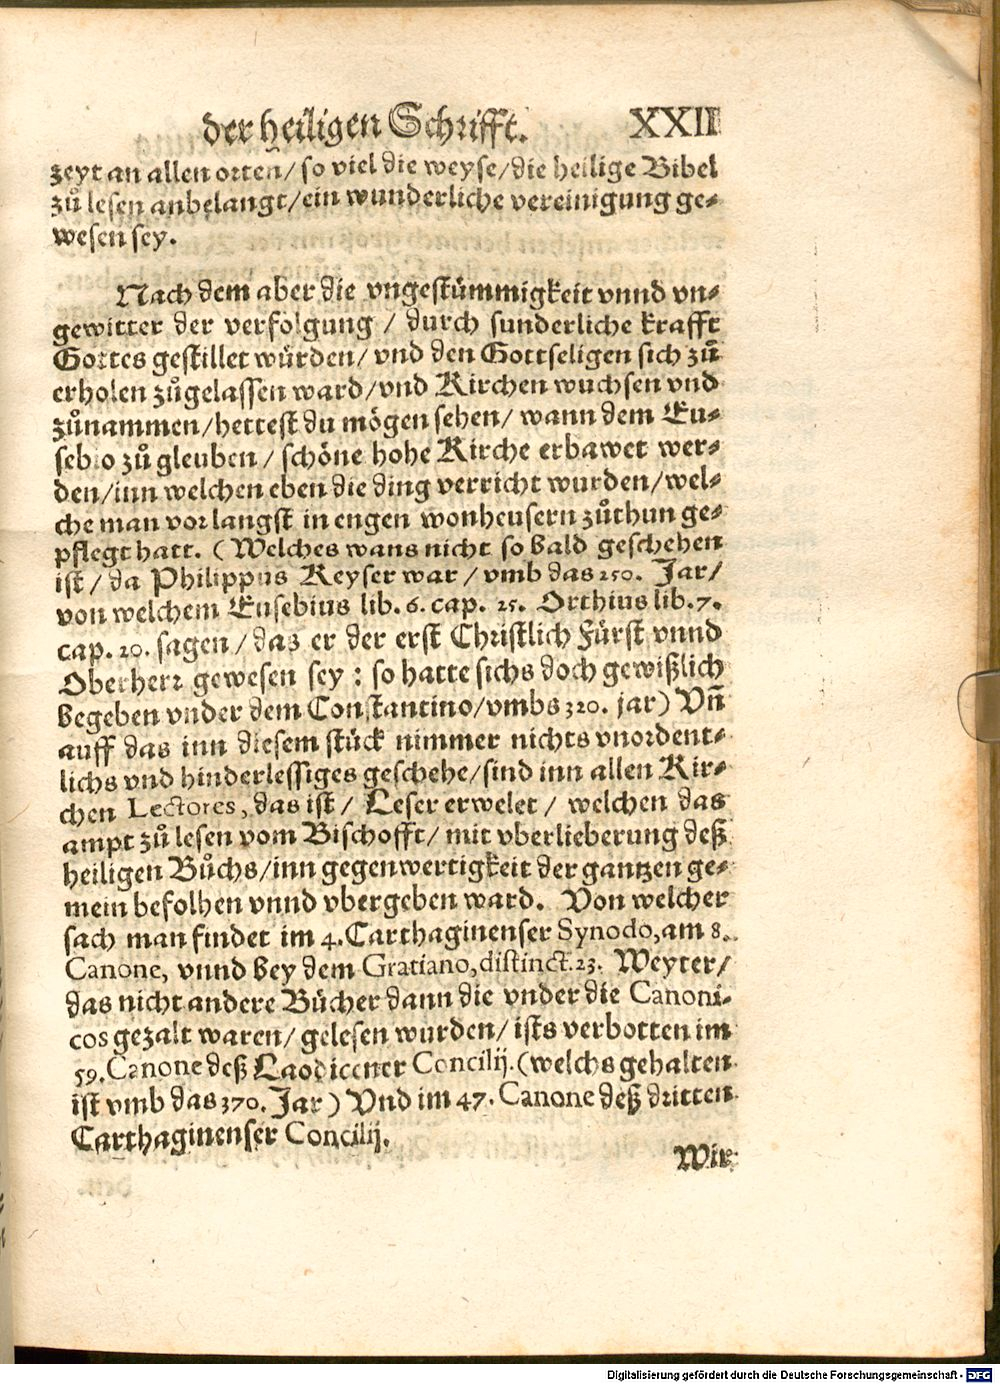 der heiligen Schrifft. XXII
zeyt an allen orten/ so viel die weyse/die heilige Bibel
zů lesen anbelangt/ein wunderliche vereinigung ge⸗
wesen sey.
Nach dem aber die vngestümmigkeit vnnd vn⸗
gewitter der verfolgung / durch sunderliche krafft
Gottes gestillet würden/ vnd den Gottseligen sich zů
erholen zůgelassen ward/vnd Kirchen wuchsen vnd
zůnammen/hettest du mögen sehen/ wann dem Eu⸗
sebio zů gleuben / schöne hohe Kirche erbawet wer⸗
den/inn welchen eben die ding verricht wurden/wel⸗
che man vor langst in engen wonheusern zůthun ge⸗
pflegt hatt. (Welches wans nicht so bald geschehen
ist / da Philippus Keyser war / vmb das 250. Jar/
von welchem Eusebius lib. 6. cap. 25. Orthius lib. 7.
cap. 20. sagen / das er der erst Christlich Fürst vnnd
Oberherr gewesen sey : so hatte sichs doch gewißlich
begeben vnder dem Constantino/vmbs 320. jar) Vñ
auff das inn diesem stück nimmer nichts vnordent⸗
lichs vnd hinderlessiges geschehe/sind inn allen Kir⸗
chen Lectores, das ist / Leser erwelet / welchen das
ampt zů lesen vom Bischofft/ mit vberlieberung deß
heiligen Bůchs/inn gegenwertigkeit der gantzen ge⸗
mein befolhen vnnd vbergeben ward. Von welcher
sach man findet im 4. Carthaginenser Synodo, am 8.
Canone, vnnd bey dem Gratiano, distinct. 23. Weyter/
das nicht andere Bücher dann die vnder die Canoni-
cos gezalt waren/ gelesen wurden/ ists verbotten im
59. Canone deß Laodicener Concilij. (welchs gehalten
ist vmb das 370. Jar) Vnd im 47. Canone deß dritten
Carthaginenser Concilij.
Wir
Digitalisierung gefördert durch die Deutsche Forschungsgemeinschaft - DFG